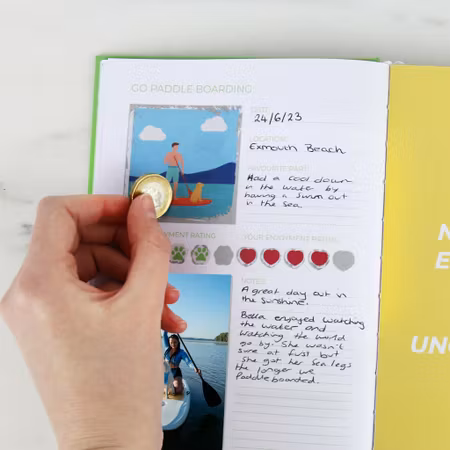 GO PADDLE BOARDING
DATE:
24/6/23
LOCATION:
Exmouth Beach
FAVOURITE PART:
Had a cool down
in the water by
having a swim out
in the sea
ENJOYMENT RATING
YOUR ENJOYMENT RATING
NOTES:
A great day out in
the sunshine.
Bella enjoyed watching
the water and
watching the world
go by. She wasn't
sure at first but
she got her sea legs
the longer we
Paddleboarded.
N
E
UN